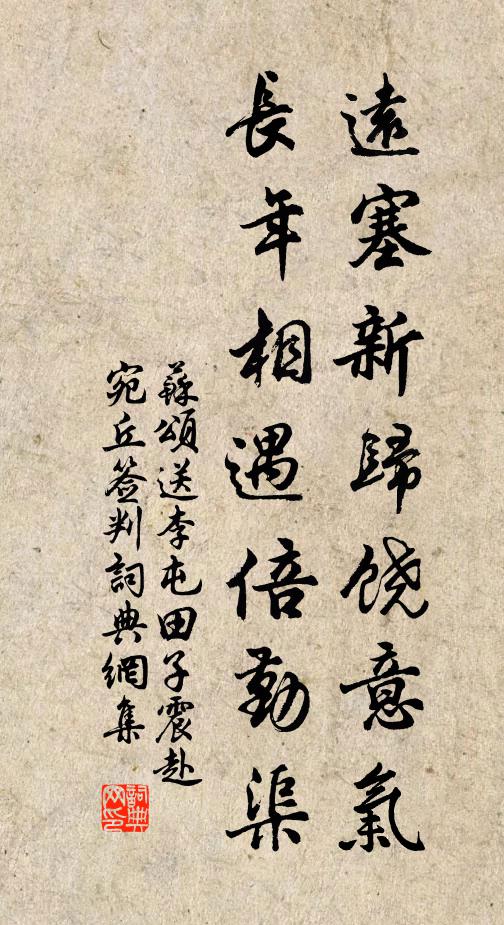 遠塞新歸饒意氣
長年相遇倍勤渠
蘇頌送李屯田子震赴
宛丘簽判詞典網集
詞典网印